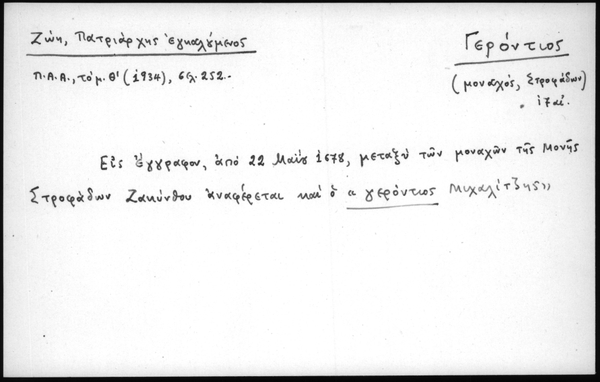 Ζώη, Πατριάρχης ἐγκαλούμενος
Π.Α.Α., τόμ. Θ' (1934), σελ. 252.-
Γερόντιος
(μοναχός, Στροφάδων)
17 αἰ.
Εἰς ἔγγραφον, ἀπό 22 Μαΐου 1678, μεταξύ τῶν μοναχῶν τῆς Μονῆς
Στροφάδων Ζακύνθου ἀναφέρεται καί ὁ «γερόντιος Μιχαλίτζης»